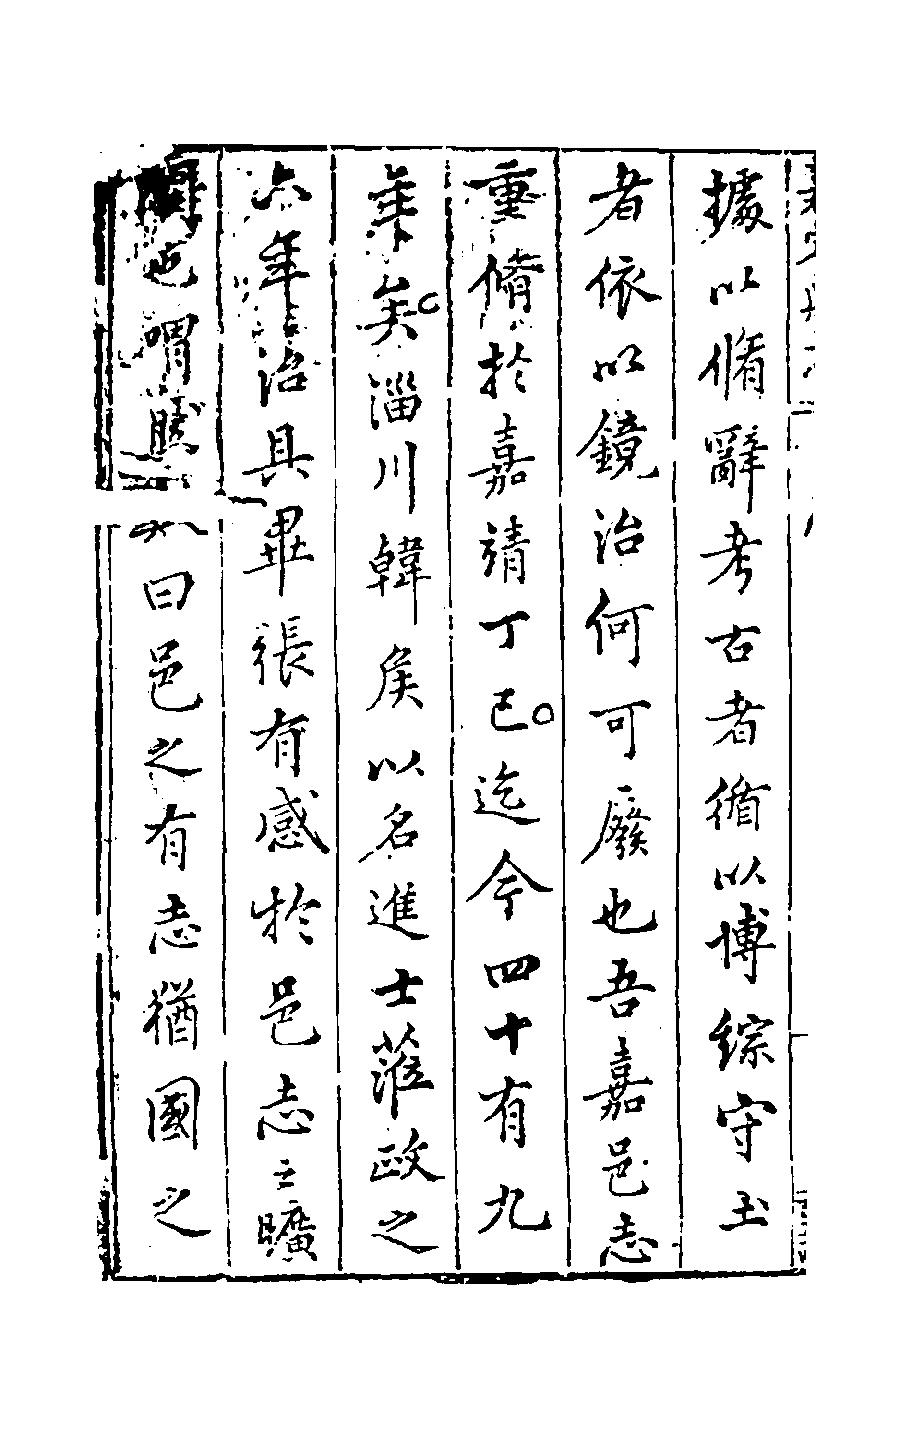 據以脩辭考古者循以博綜守土
者依以鏡治何可廢也吾嘉邑志
重脩於嘉靖丁巳迄今四十有九
年矣淄川韓侯以名進士蒞政之
六年治具畢張有感於邑志之曠
也謂曰邑之有志猶國之